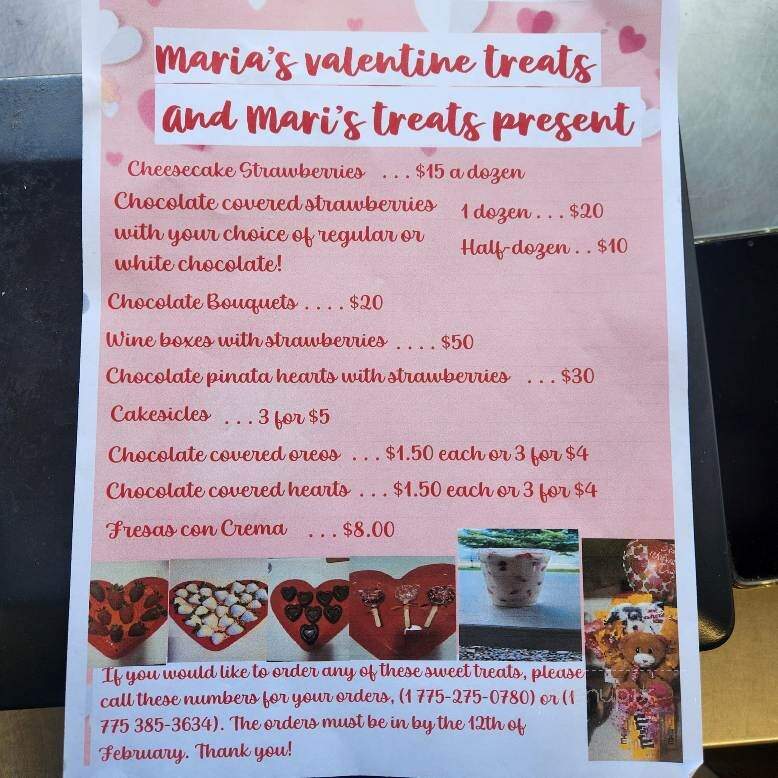 Maria's valentine treats
And Mari's treats present
Cheesecake Strawberries ... $15 a dozen
Chocolate covered strawberries
with your choice of regular or
white chocolate!
1 dozen ... $20
Half-dozen .. $10
Chocolate Bouquets .... $20
Wine boxes with strawberries .... $50
Chocolate pinata hearts with strawberries ... $30
Cakesicles ... 3 for $5
Chocolate covered oreos ... $1.50 each or 3 for $4
Chocolate covered hearts ... $1.50 each or 3 for $4
Fresas con Crema ... $8.00
If you would like to order any of these sweet treats, please
call these numbers for your orders, (1 775-275-0780) or (1
775 385-3634). The orders must be in by the 12th of
February. Thank you!